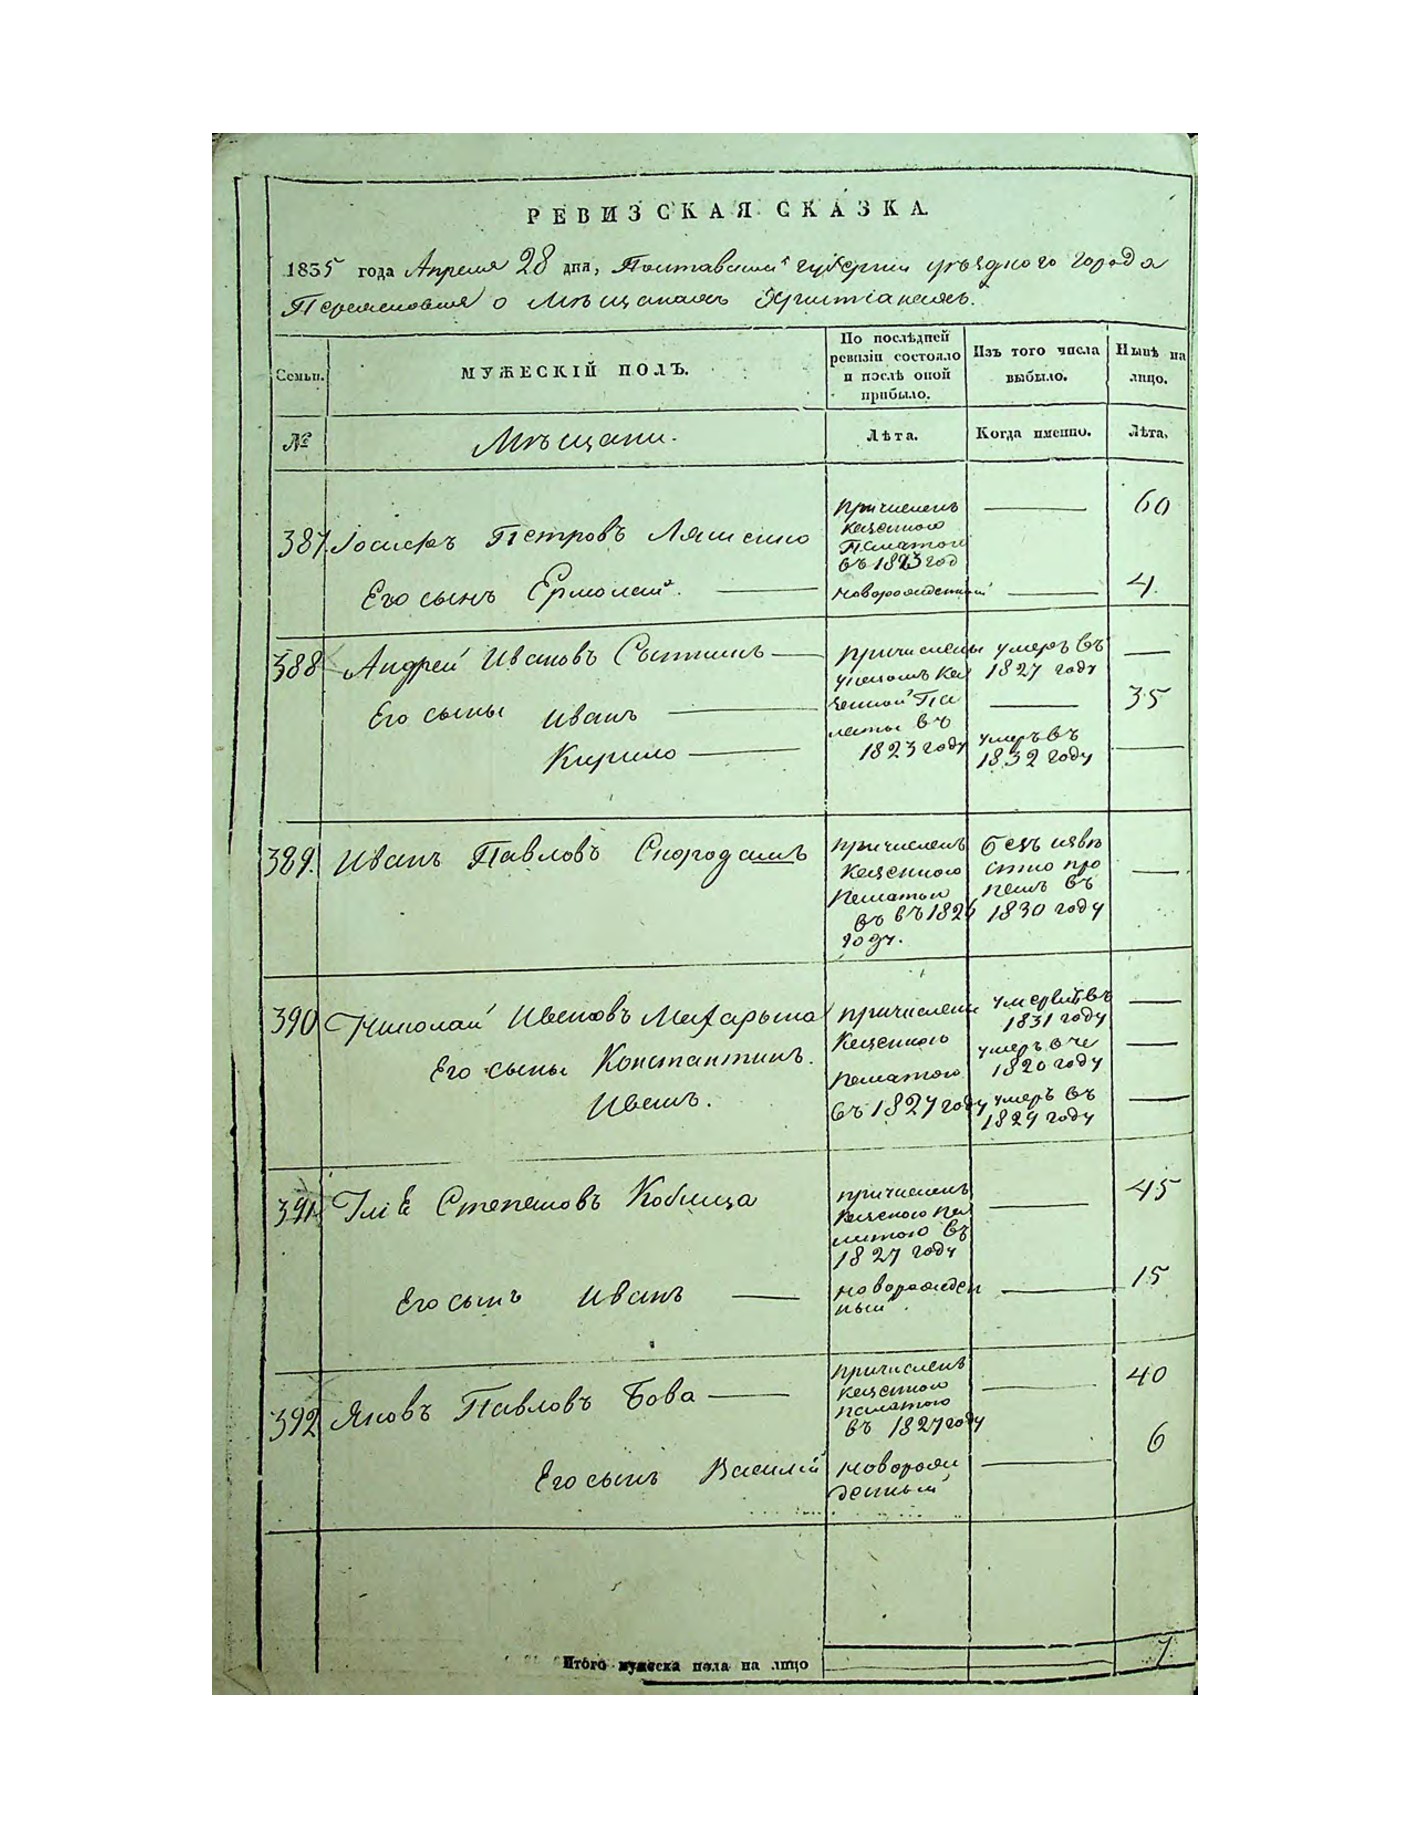 РЕВИЗСКАЯ СКАЗКА
1835 года Апреля 28 дня, Полтавской губернии уѣзднаго города
Переяславля о Мѣщанахъ Христіанахъ.
Семьи.
МУЖЕСКІЙ ПОЛЪ.
По послѣдней
ревизіи состояло
и послѣ оной
прибыло.
Изъ того числа
выбыло.
Нынѣ на
лицо.
№
Мѣщани.
Лѣта.
Когда именно.
Лѣта.
387. Іосифъ Петровъ Ляшенко
причисленъ
казенною
Палатою
въ 1823 год
60
Его сынъ Ермолай.
новорожденный
4.
388 Андрей Ивановъ
причислены
указомъ Ка
зенной Па
латы въ
1823 году
умеръ въ
1827 году
Его сыны Иванъ
35
Кирило
умеръ въ
1832 году
389. Иванъ Павловъ
причисленъ
казенною
палатою
въ въ 1826
году.
безъ извѣ
стно про
палъ въ
1830 году
390 Николай Ивановъ
причислени
казенною
палатою
въ 1827 году
умеръ въ
1831 году
Его сыны Константинъ.
умеръ
1820 году
Иванъ.
умеръ въ
1829 году
391. Степановъ Кобища
причисленъ
казеною па
латою въ
1827 году
45
Его сынъ Иванъ
новорожден
ный.
15
392 Яковъ Павловъ Бова
причисленъ
казенною
палатою
въ 1827 году
40
Его сынъ Василій
новорож
денный
6
Итого мужеска пола на лицо
7